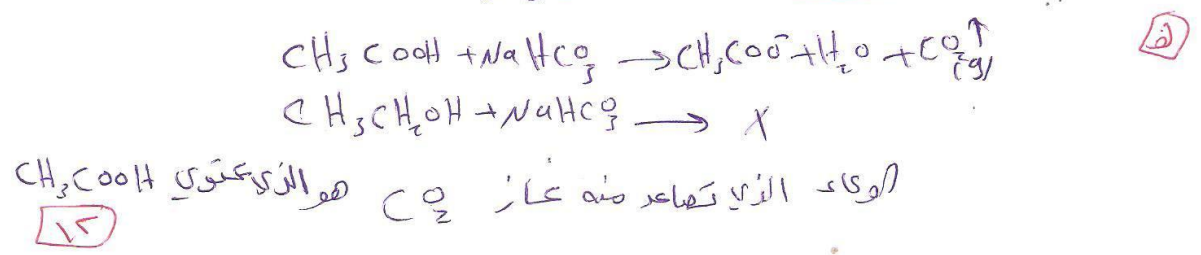 ف
CH₃COOH + NaHCO₃ → CH₃COO⁻ + H₂O + CO₂(g)↑
CH₃CH₂OH + NaHCO₃ → X
الوعاء الذي تصاعد منه غاز CO₂ هو الذي يحتوي CH₃COOH
١٢